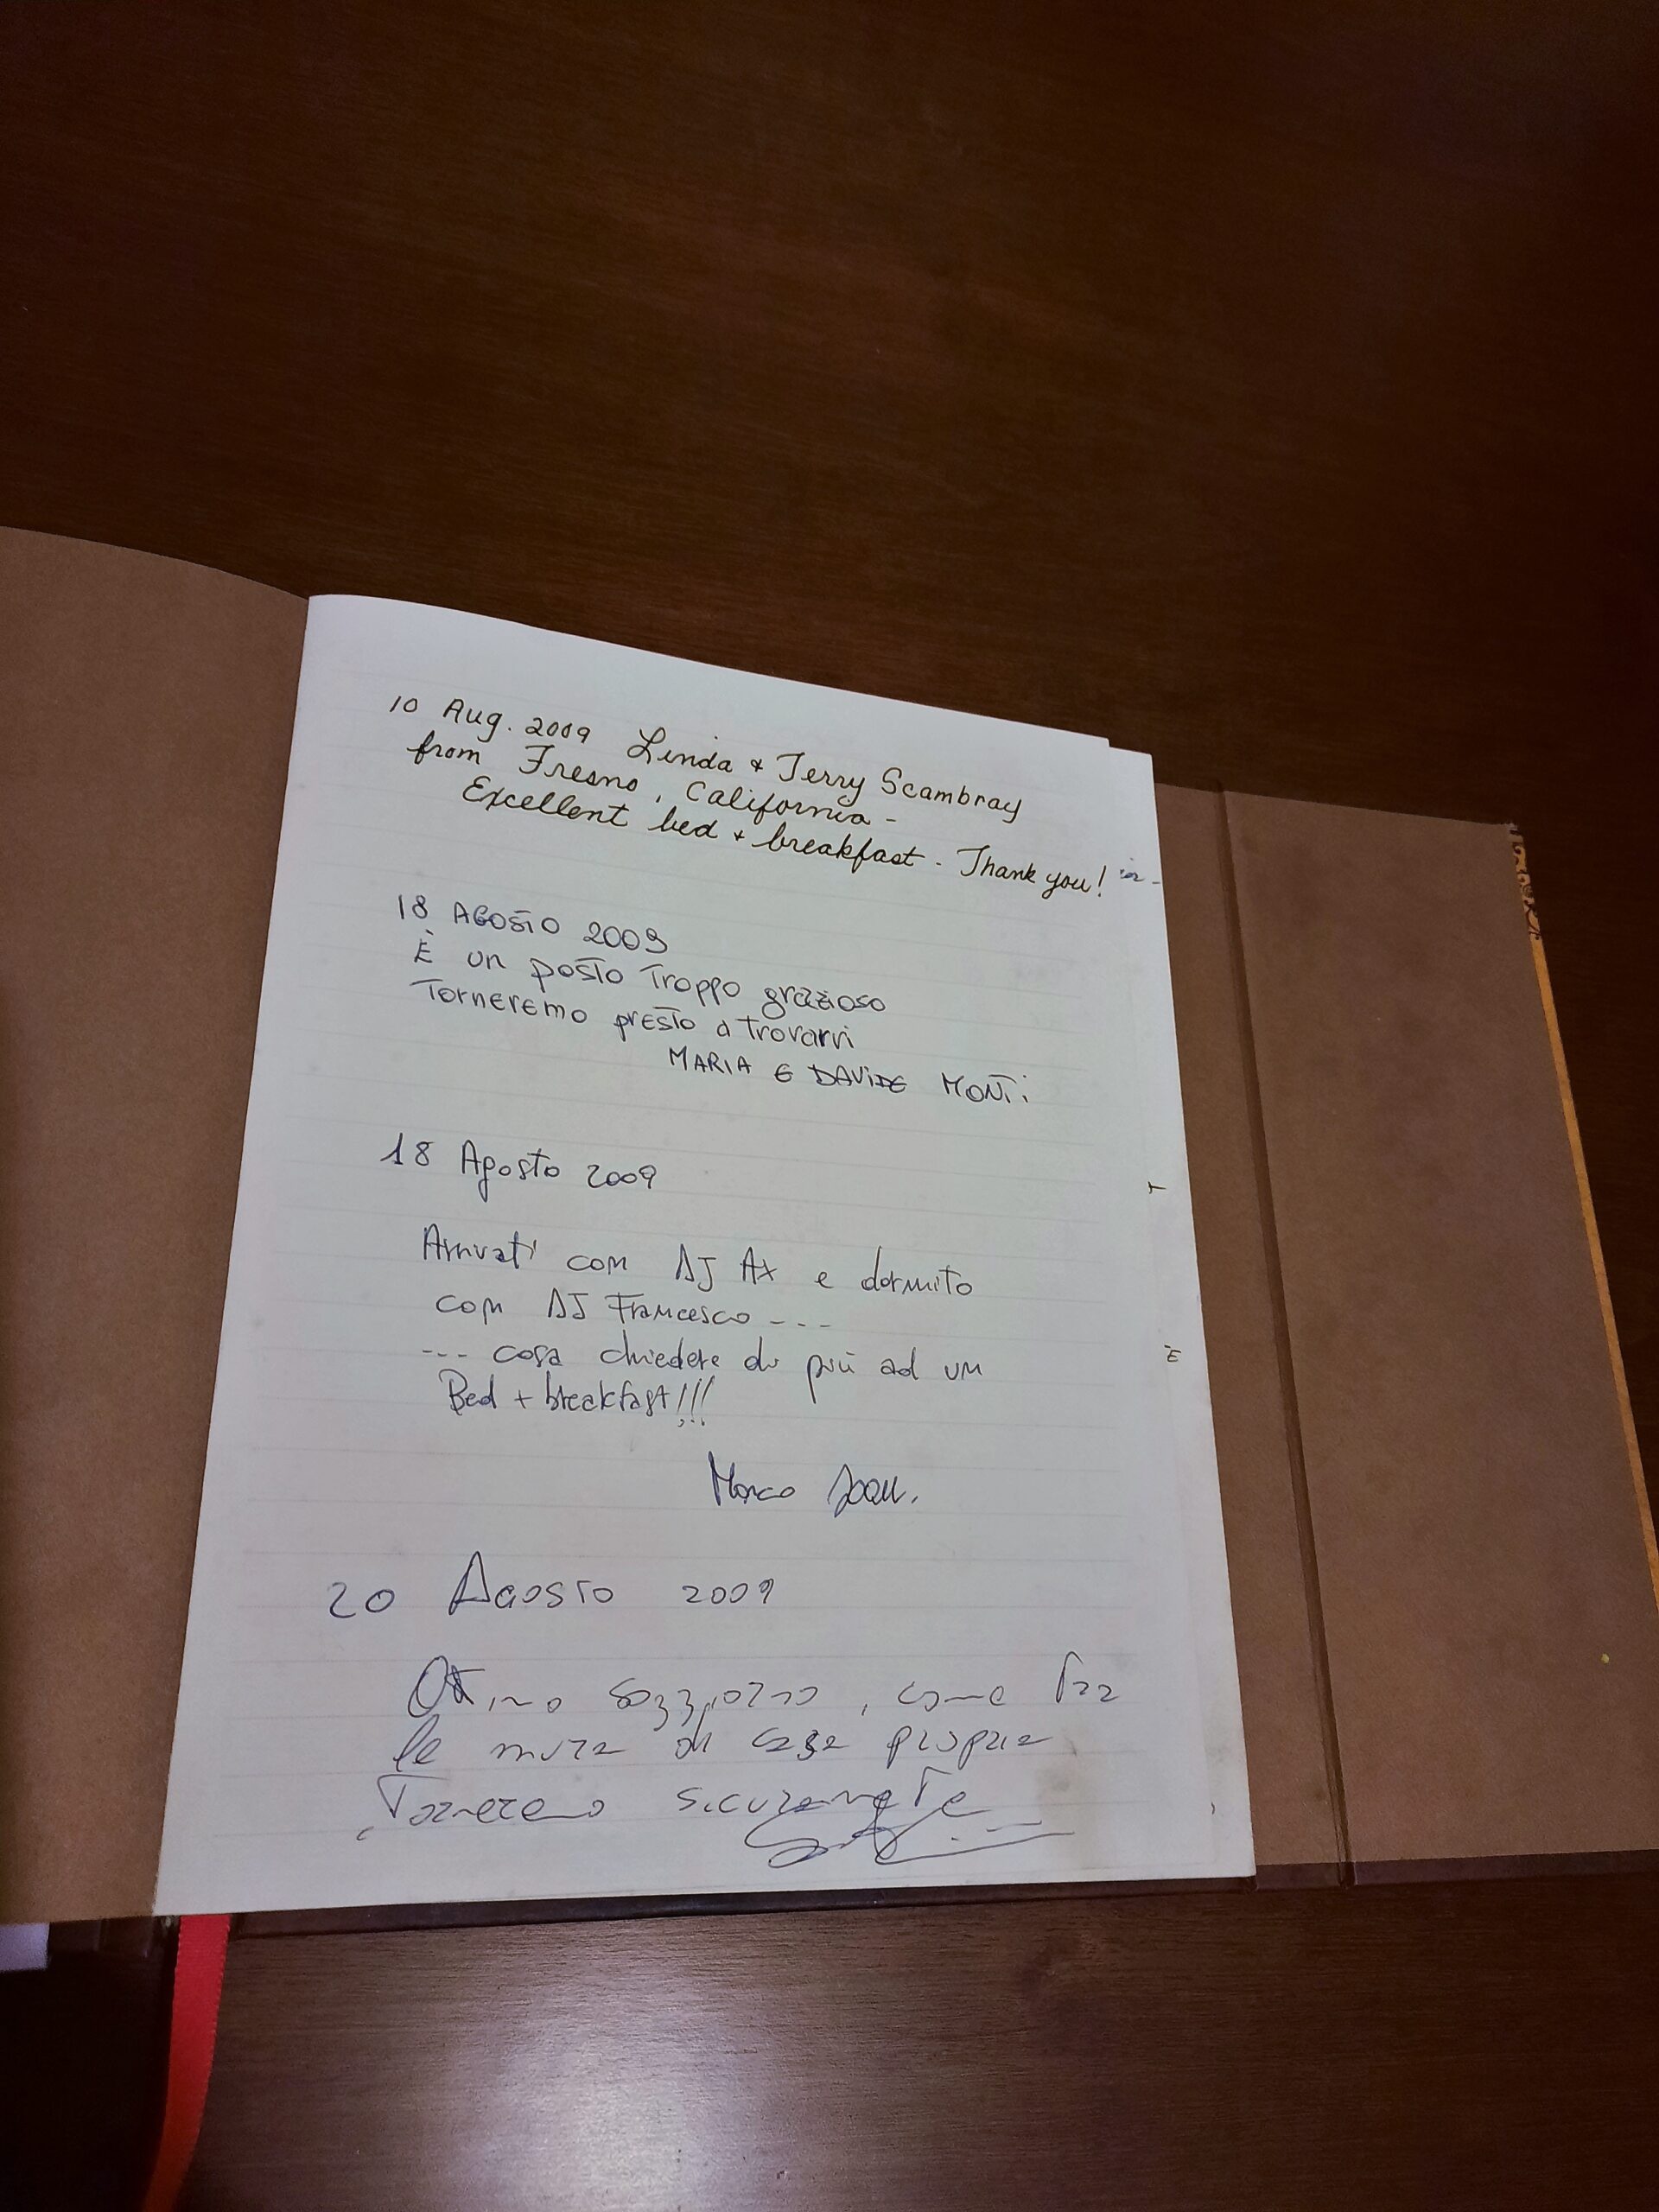 10 Aug. 2009 Linda + Terry Scambray
from Fresno, California -
Excellent bed + breakfast - Thank you!
18 AGOSTO 2009
È un posto troppo grazioso
Torneremo presto a trovarvi
MARIA E DAVIDE MONTI
18 Agosto 2009
Arrivati con DJ AX e dormito
con DJ Francesco ---
--- cosa chiedere di più ad un
Bed + breakfast!!!
Marco
20 Agosto 2009
Ottimo soggiorno, come tra
le mura di casa propria
Torneremo sicuramente